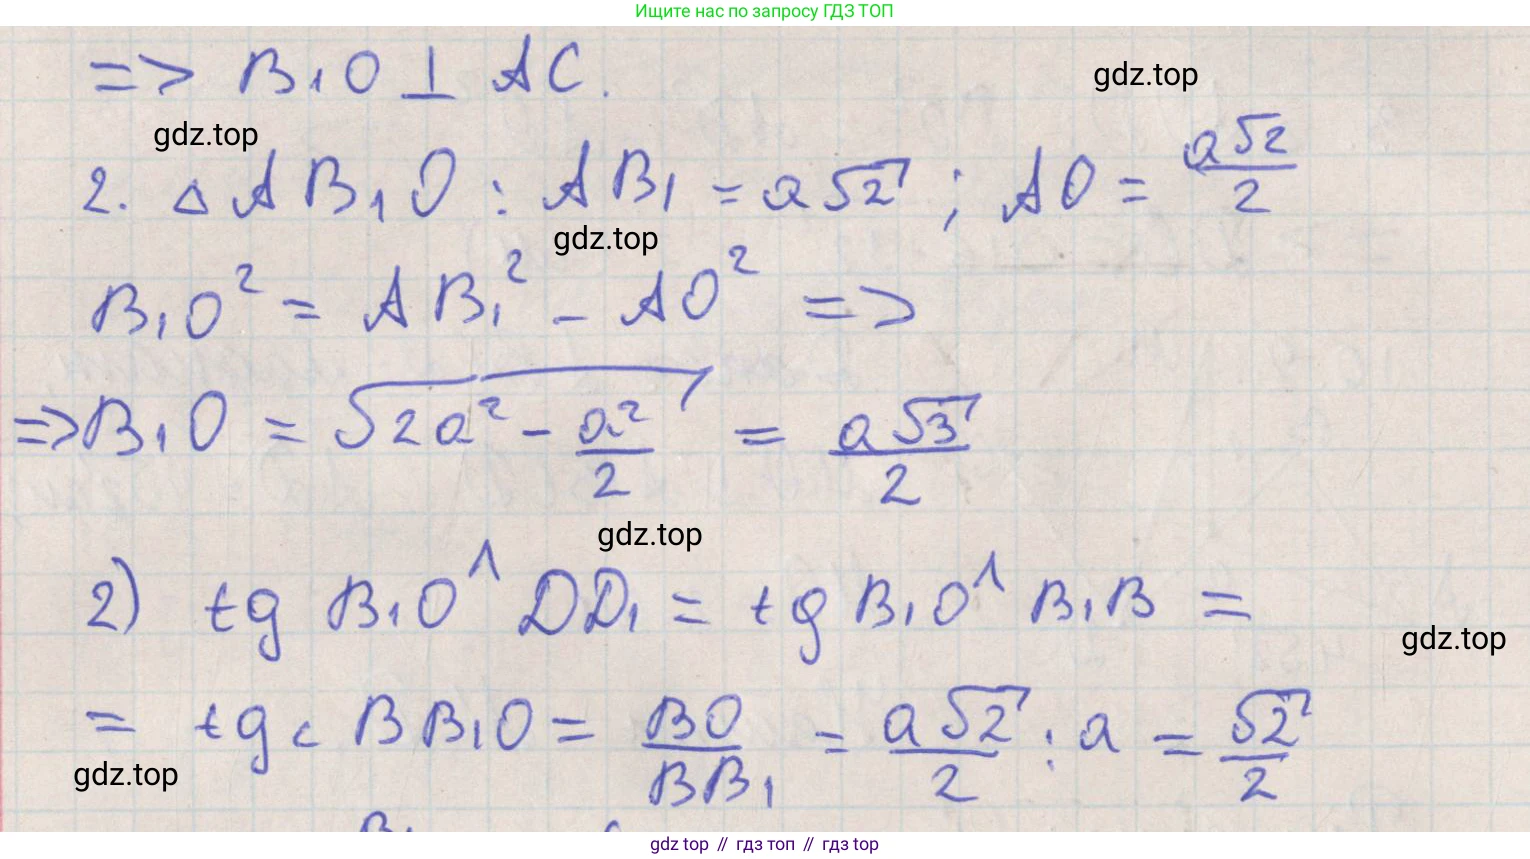 Ищите нас по запросу ГДЗ ТОП
=> B₁O ⊥ AC.
gdz.top
gdz.top
2. △ AB₁O : AB₁ = a√2 ; AO = a√2/2
gdz.top
B₁O² = AB₁² - AO² =>
=> B₁O = √(2a² - a²/2) = a√3/2
gdz.top
2) tg B₁O^DD₁ = tg B₁O^B₁B =
gdz.top
= tg∠BB₁O = BO/BB₁ = a√2/2 : a = √2/2
gdz.top
gdz.top // гдз топ // gdz.top